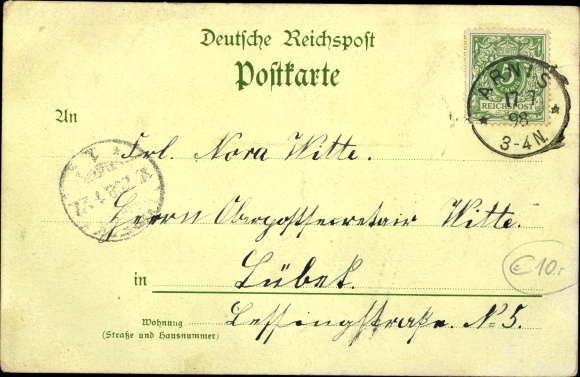 Deutsche Reichspost
Postkarte
5
REICHSPOST
ARNIS
17 7
98
3-4N.
An
Frl. Nora Witte.
Herrn Oberpostsecretair Witte.
in Lübek.
Lessingstraße. No 5.
Wohnung
(Straße und Hausnummer)
€10.-